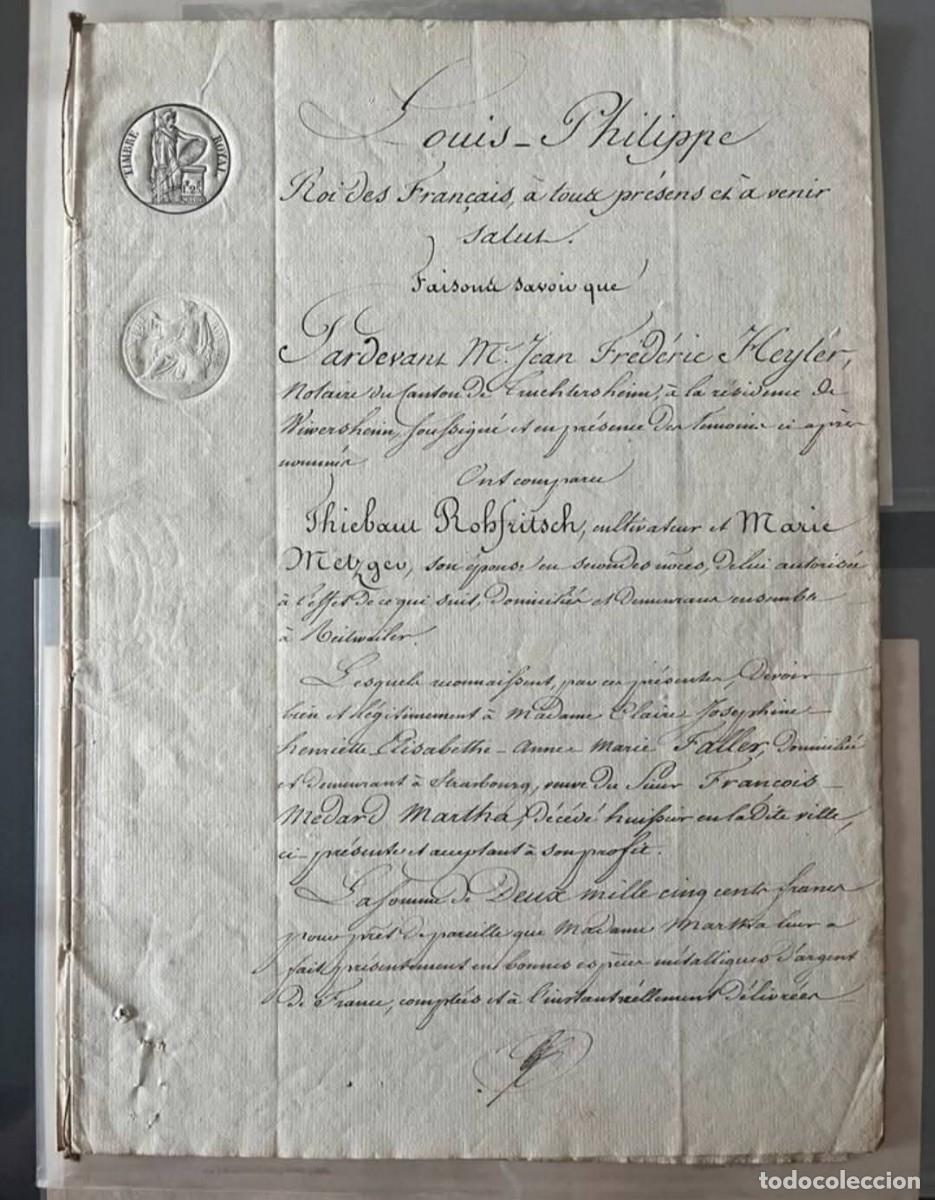 TIMBRE ROYAL
Louis-Philippe
Roi des Français, à tous présens et à venir
salut.
Faisons savoir que
Pardevant Mr. Jean Frédéric Heyler,
Notaire du Canton de Truchtersheim, à la résidence de
Wiwersheim, soussigné et en présence des témoins ci après
nommés
Ont comparu
Thiebaut Rohfritsch, cultivateur et Marie
Metzger, son épouse en secondes nôces, de lui autorisée
à l'effet de ce qui suit, domiciliés et demeurans ensemble
à
Lesquels reconnaissent, par ces présentes, devoir
bien et légitimement à Madame Claire Josephine
henriette Elisabethe Anne Marie Faller, domiciliée
et demeurant à Strasbourg, veuve du Sieur François
Médard Martha, décédé huissier en la dite ville,
ci-présente et acceptant à son profit.
La somme de Deux mille cinq cents francs
pour prêt de pareille que Madame Martha leur a
fait présentement en bonnes espèces métalliques d'argent
de France, comptées et à l'instant réellement délivrées
todocoleccion